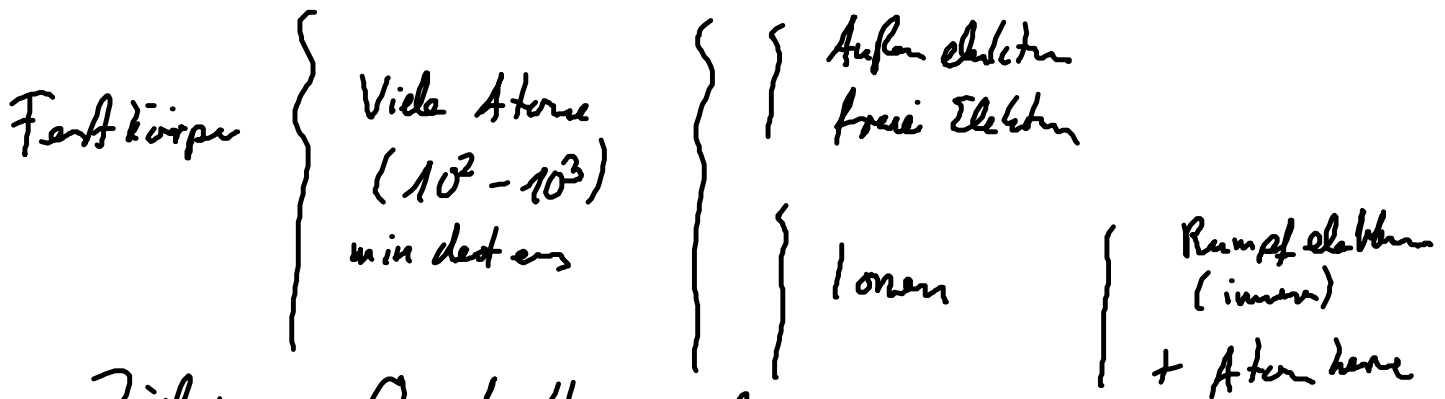 Festkörper
Viele Atome
(10² - 10³)
mindestens
Außenelektron
freie Elektron
Ionen
Rumpfelektronen
(innere)
+ Atomkerne